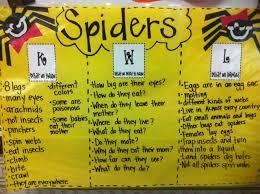 Spiders
K
W
L
What We Know
8 legs
many eyes
arachnids
not insects
pinchers
spin webs
eat insects
climb
bite
crawl
they are everywhere
different colors
Some are poisonous
Some babies eat their mother
How big are their eyes?
How do they eat?
When do they leave their mother?
Where do they live?
What do they eat?
Do they molt?
Why do they eat their mom?
How far can they see?
What do they do?
Eggs are in an egg sac
different kinds of webs
Live in almost every country
Eat small animals and bugs
Other bugs eat spiders
Females lay eggs
Trap insects and turn them into a liquid
Land spiders dig holes
Not all spiders spin webs